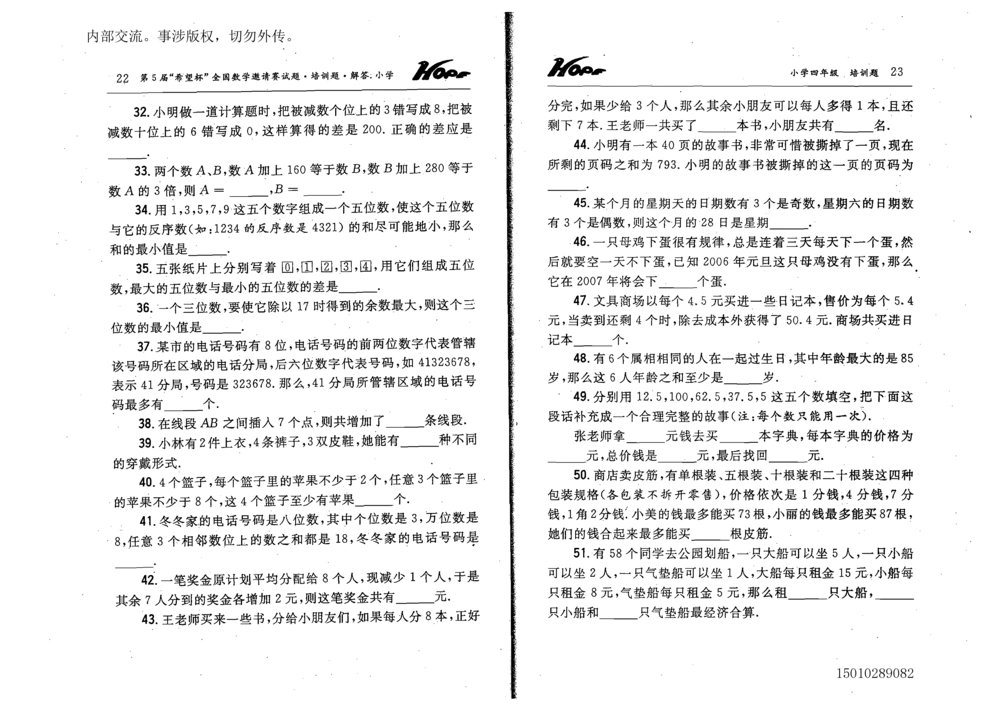 内部交流。事涉版权，切勿外传。
22 第5届“希望杯”全国数学邀请赛试题·培训题·解答.小学 HOPE
32.小明做一道计算题时,把被减数个位上的3错写成8,把被
减数十位上的 6 错写成 0,这样算得的差是 200. 正确的差应是
______.
33.两个数A、B,数A加上160等于数B,数B加上280等于
数A的3倍,则A=______,B=______.
34.用1,3,5,7,9这五个数字组成一个五位数,使这个五位数
与它的反序数(如:1234的反序数是4321)的和尽可能地小,那么
和的最小值是______.
35.五张纸片上分别写着 0,1,2,3,4,用它们组成五位
数,最大的五位数与最小的五位数的差是______.
36.一个三位数,要使它除以17时得到的余数最大,则这个三
位数的最小值是______.
37.某市的电话号码有8位,电话号码的前两位数字代表管辖
该号码所在区域的电话分局,后六位数字代表号码,如41323678,
表示41分局,号码是323678.那么,41分局所管辖区域的电话号
码最多有______个.
38.在线段AB之间插入7个点,则共增加了______条线段.
39.小林有2件上衣,4条裤子,3双皮鞋,她能有______种不同
的穿戴形式.
40.4个篮子,每个篮子里的苹果不少于2个,任意3个篮子里
的苹果不少于8个,这4个篮子至少有苹果______个.
41.冬冬家的电话号码是八位数,其中个位数是3,万位数是
8,任意3个相邻数位上的数之和都是18,冬冬家的电话号码是
______.
42.一笔奖金原计划平均分配给8个人,现减少1个人,于是
其余7人分到的奖金各增加2元,则这笔奖金共有______元.
43.王老师买来一些书,分给小朋友们,如果每人分8本,正好
HOPE 小学四年级 培训题 23
分完,如果少给3个人,那么其余小朋友可以每人多得1本,且还
剩下7本.王老师一共买了______本书,小朋友共有______名.
44.小明有一本40页的故事书,非常可惜被撕掉了一页,现在
所剩的页码之和为793.小明的故事书被撕掉的这一页的页码为
______.
45.某个月的星期天的日期数有3个是奇数,星期六的日期数
有3个是偶数,则这个月的28日是星期______.
46.一只母鸡下蛋很有规律,总是连着三天每天下一个蛋,然
后就要空一天不下蛋,已知2006年元旦这只母鸡没有下蛋,那么
它在2007年将会下______个蛋.
47.文具商场以每个4.5元买进一些日记本,售价为每个5.4
元,当卖到还剩4个时,除去成本外获得了50.4元.商场共买进日
记本______个.
48.有6个属相相同的人在一起过生日,其中年龄最大的是85
岁,那么这6人年龄之和至少是______岁.
49.分别用12.5,100,62.5,37.5,5这五个数填空,把下面这
段话补充成一个合理完整的故事(注:每个数只能用一次).
张老师拿______元钱去买______本字典,每本字典的价格为
______元,总价钱是______元,最后找回______元.
50.商店卖皮筋,有单根装、五根装、十根装和二十根装这四种
包装规格(各包装不拆开零售),价格依次是1分钱,4分钱,7分
钱,1角2分钱.小美的钱最多能买73根,小丽的钱最多能买87根,
她们的钱合起来最多能买______根皮筋.
51.有58个同学去公园划船,一只大船可以坐5人,一只小船
可以坐2人,一只气垫船可以坐1人,大船每只租金15元,小船每
只租金8元,气垫船每只租金5元,那么租______只大船,______
只小船和______只气垫船最经济合算.
15010289082